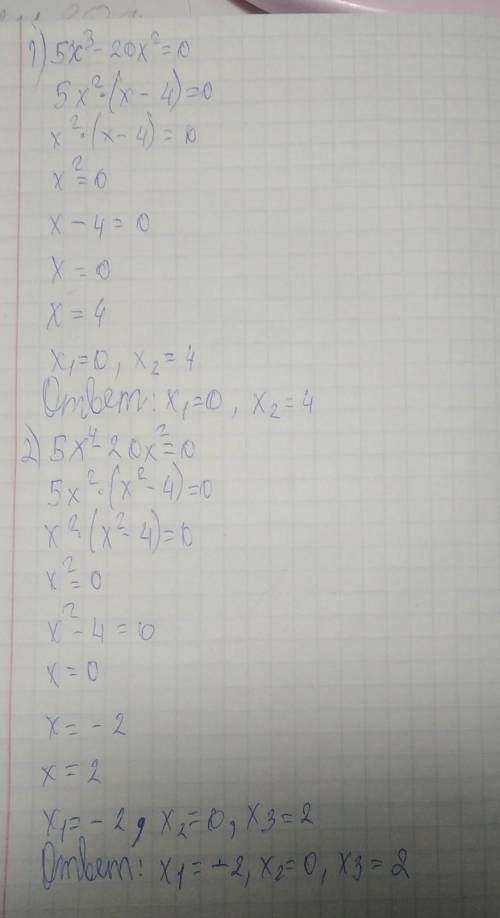 1) 5x³ - 20x² = 0
5x² · (x - 4) = 0
x² · (x - 4) = 0
x² = 0
x - 4 = 0
x = 0
x = 4
x₁ = 0, x₂ = 4
Ответ: x₁ = 0, x₂ = 4
2) 5x⁴ - 20x² = 0
5x² · (x² - 4) = 0
x² · (x² - 4) = 0
x² = 0
x² - 4 = 0
x = 0
x = - 2
x = 2
x₁ = - 2, x₂ = 0, x3 = 2
Ответ: x₁ = -2, x₂ = 0, x3 = 2